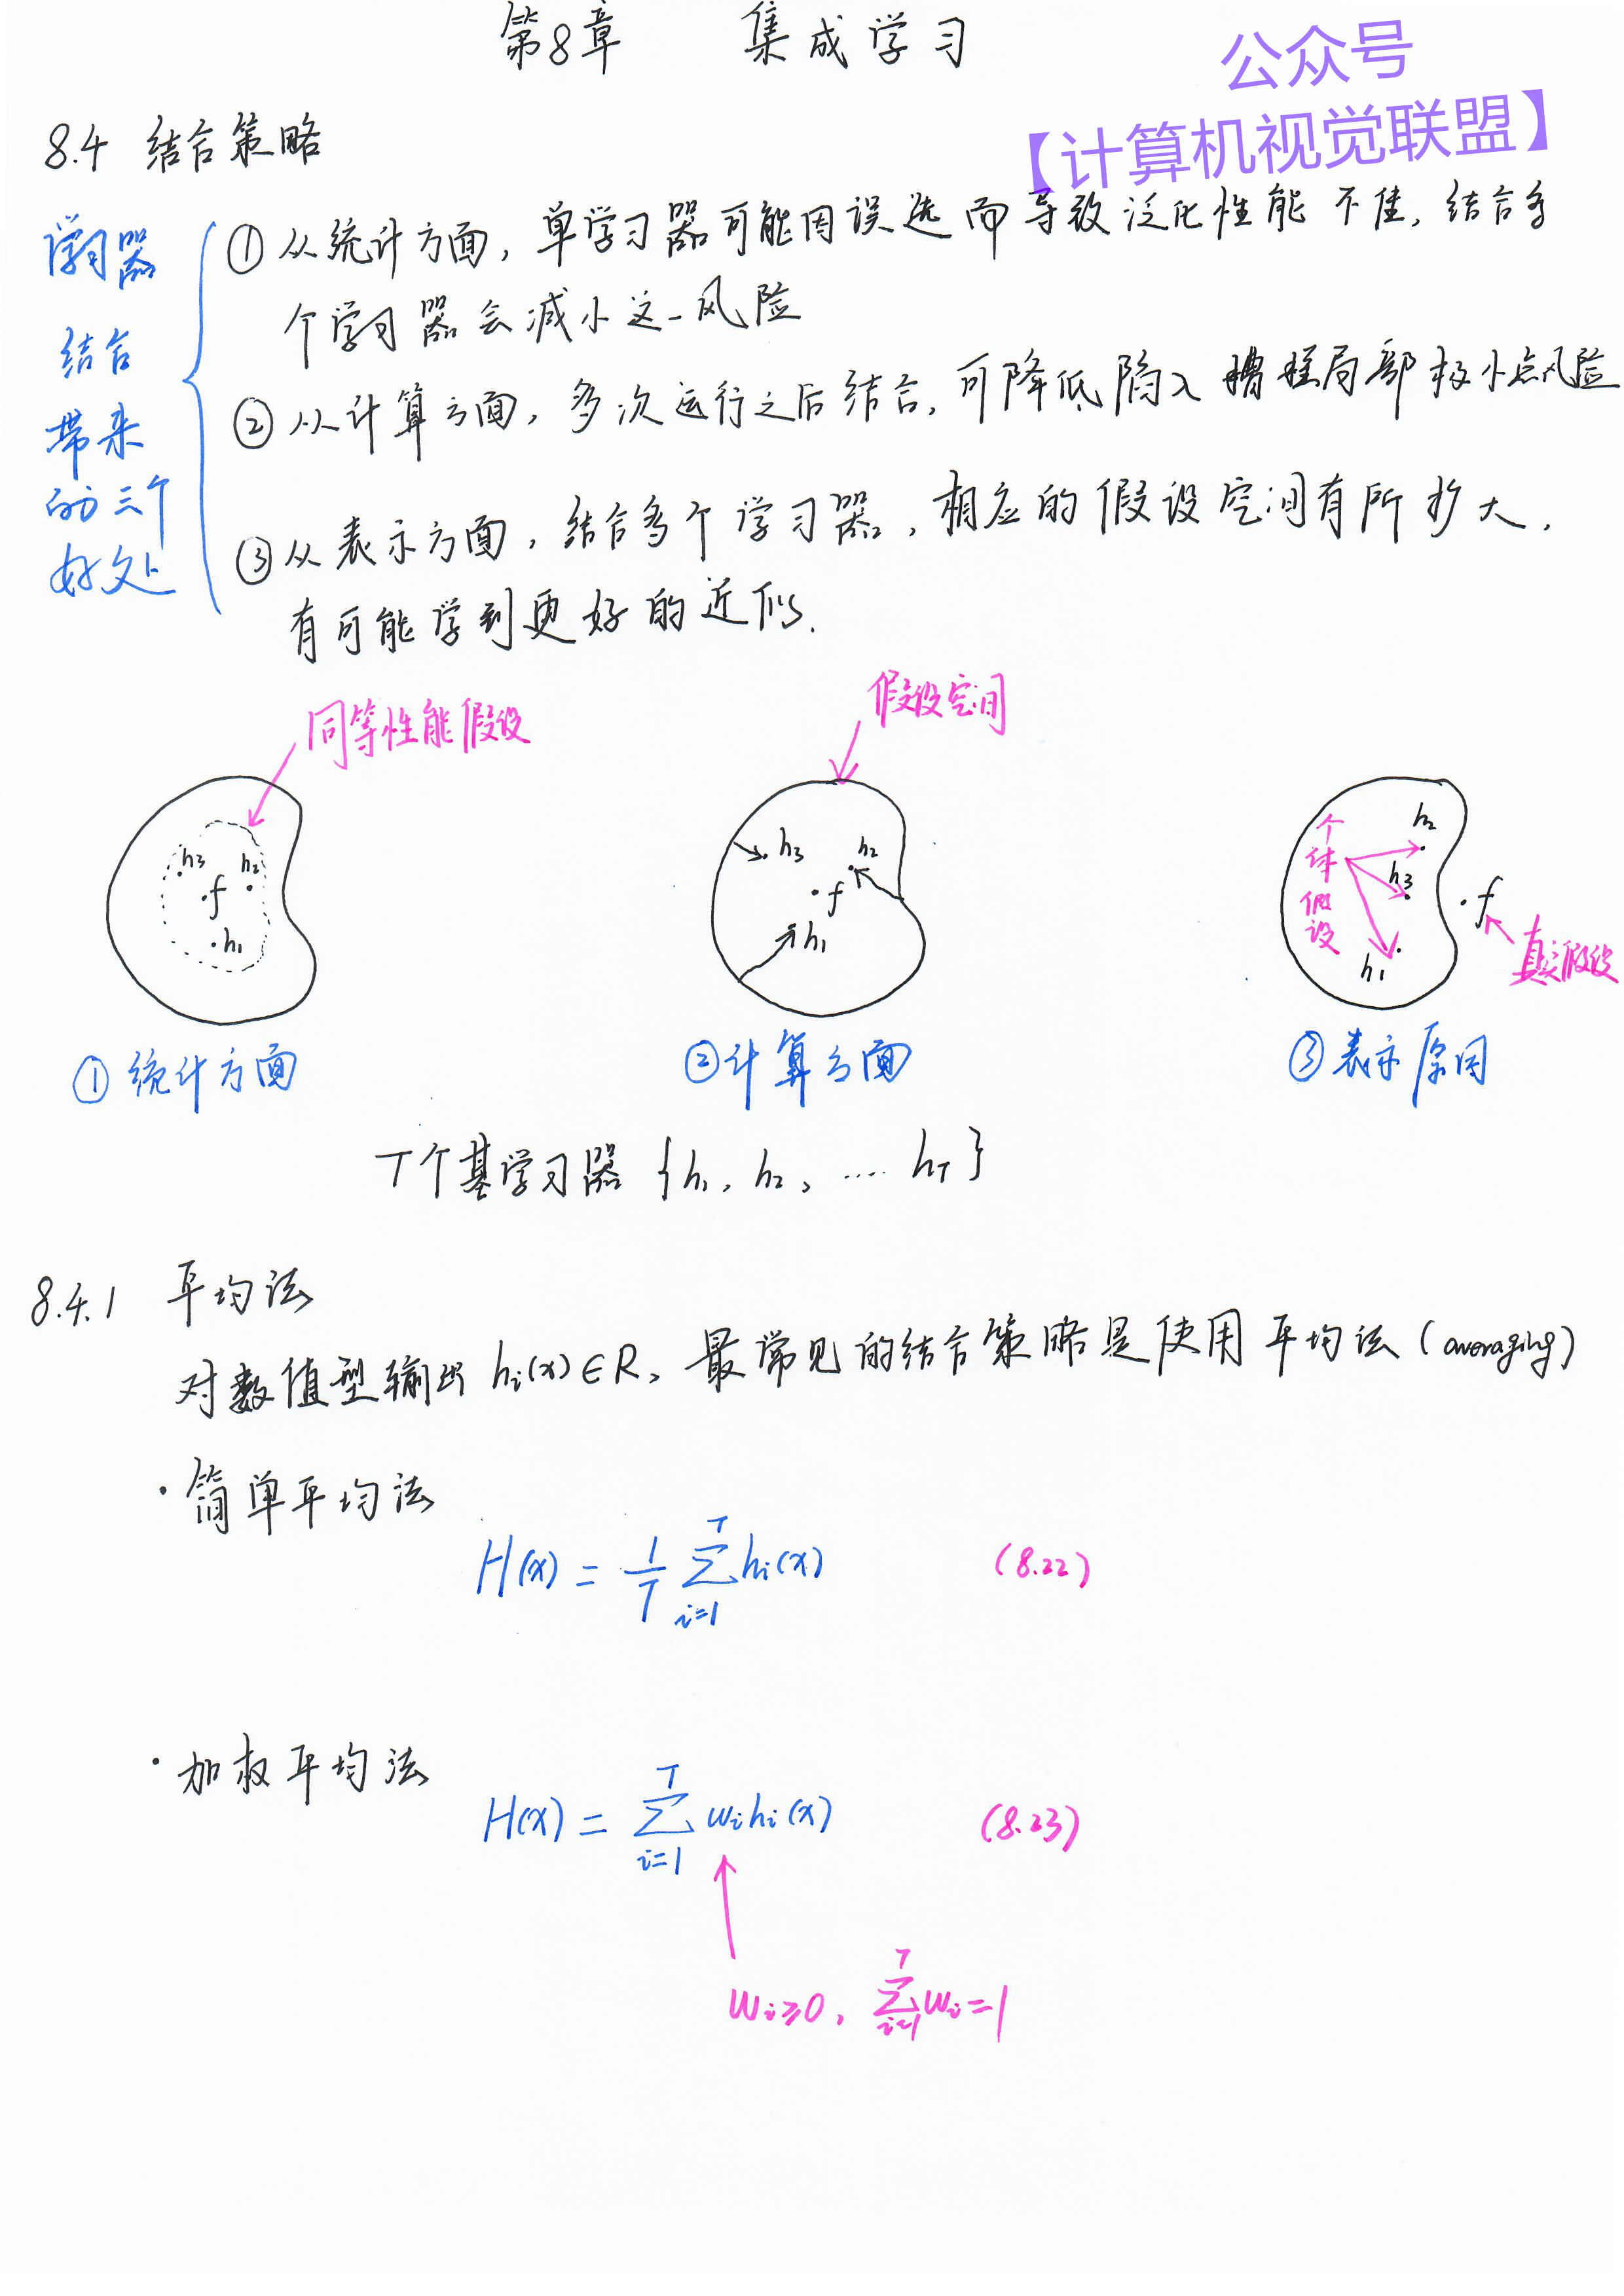 第8章 集成学习
公众号
【计算机视觉联盟】
8.4 结合策略
学习器
结合
带来
的三个
好处
① 从统计方面，单学习器可能因误选而导致泛化性能不佳，结合多
个学习器会减小这一风险
② 从计算方面，多次运行之后结合，可降低陷入糟糕局部极小点风险
③ 从表示方面，结合多个学习器，相应的假设空间有所扩大，
有可能学到更好的近似.
同等性能假设
假设空间
h3 h2
f
h1
h3 h2
f
h1
个体假设
h2
h3
h1
f
真实假设
① 统计方面
② 计算方面
③ 表示原因
T个基学习器 {h1, h2, .... hT}
8.4.1 平均法
对数值型输出 hi(x)∈R, 最常见的结合策略是使用平均法 (averaging)
· 简单平均法
H(x) = 1/T ∑_{i=1}^{T} hi(x) (8.22)
· 加权平均法
H(x) = ∑_{i=1}^{T} wihi(x) (8.23)
wi≥0, ∑_{i=1}^{T} wi=1